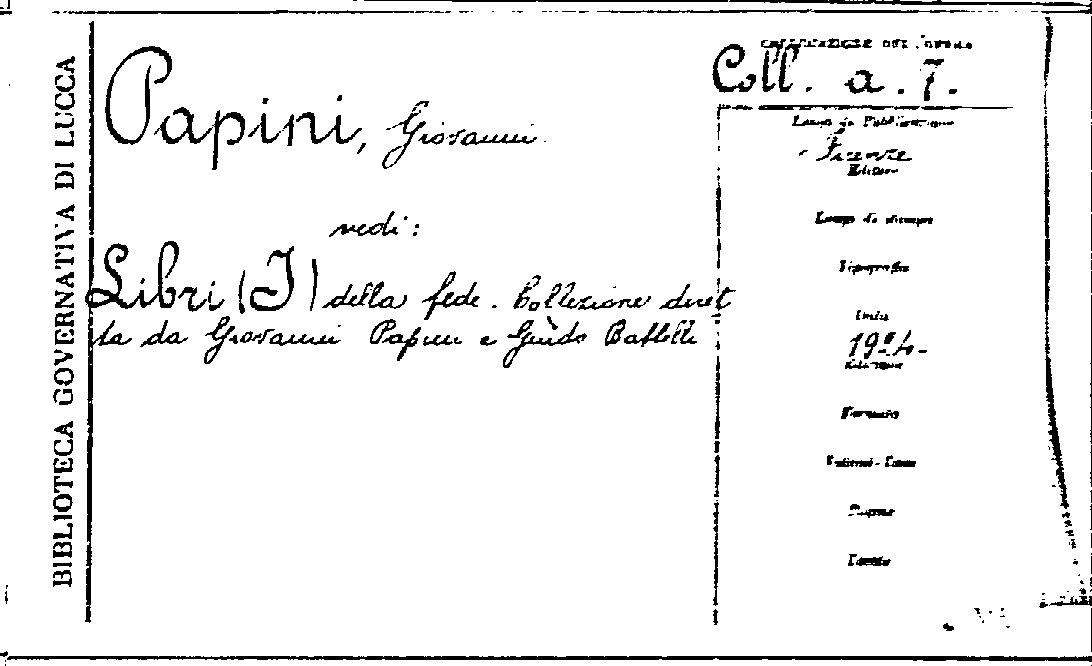 BIBLIOTECA GOVERNATIVA DI LUCCA
Papini, Giovanni
vedi:
Libri (I) della fede. Collezione diret
ta da Giovanni Papini e Guido Battelli
Coll. a. 7.
Luogo di Pubblicazione
Firenze
Editore
Luogo di stampa
Tipografia
Data
Formato
Volumi - Tomi
Pagine
Tavole